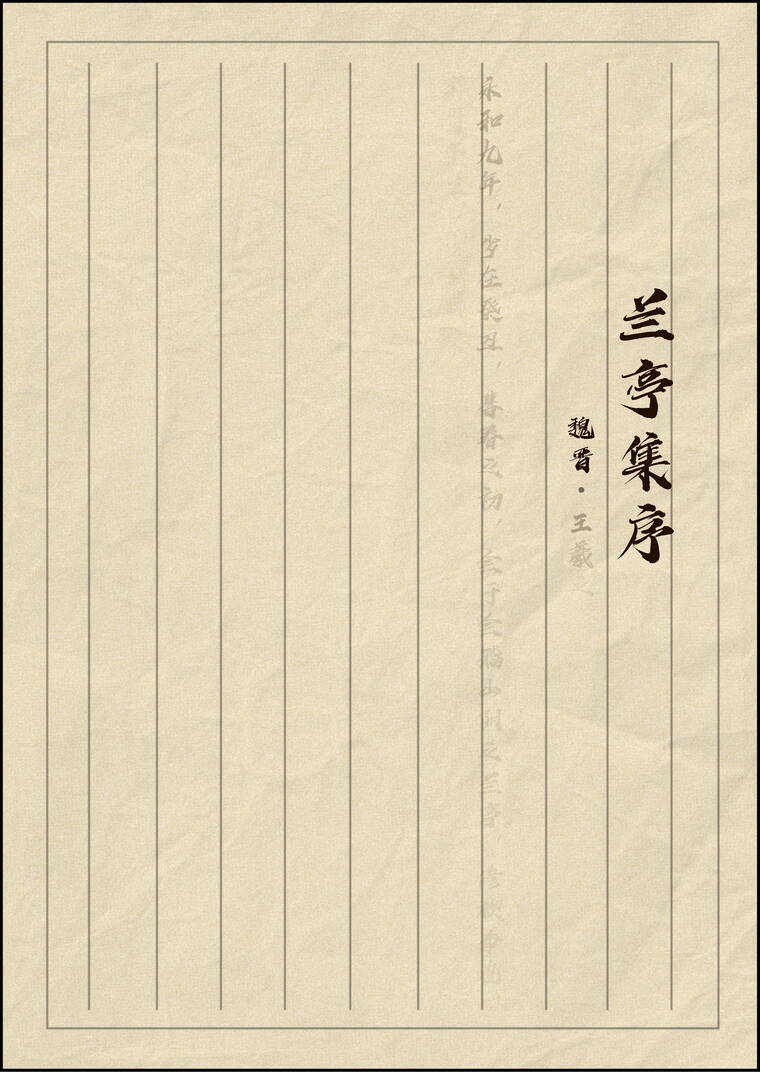 兰亭集序
魏晋·王羲之
永和九年，岁在癸丑，暮春之初，会于会稽山阴之兰亭，修禊事也